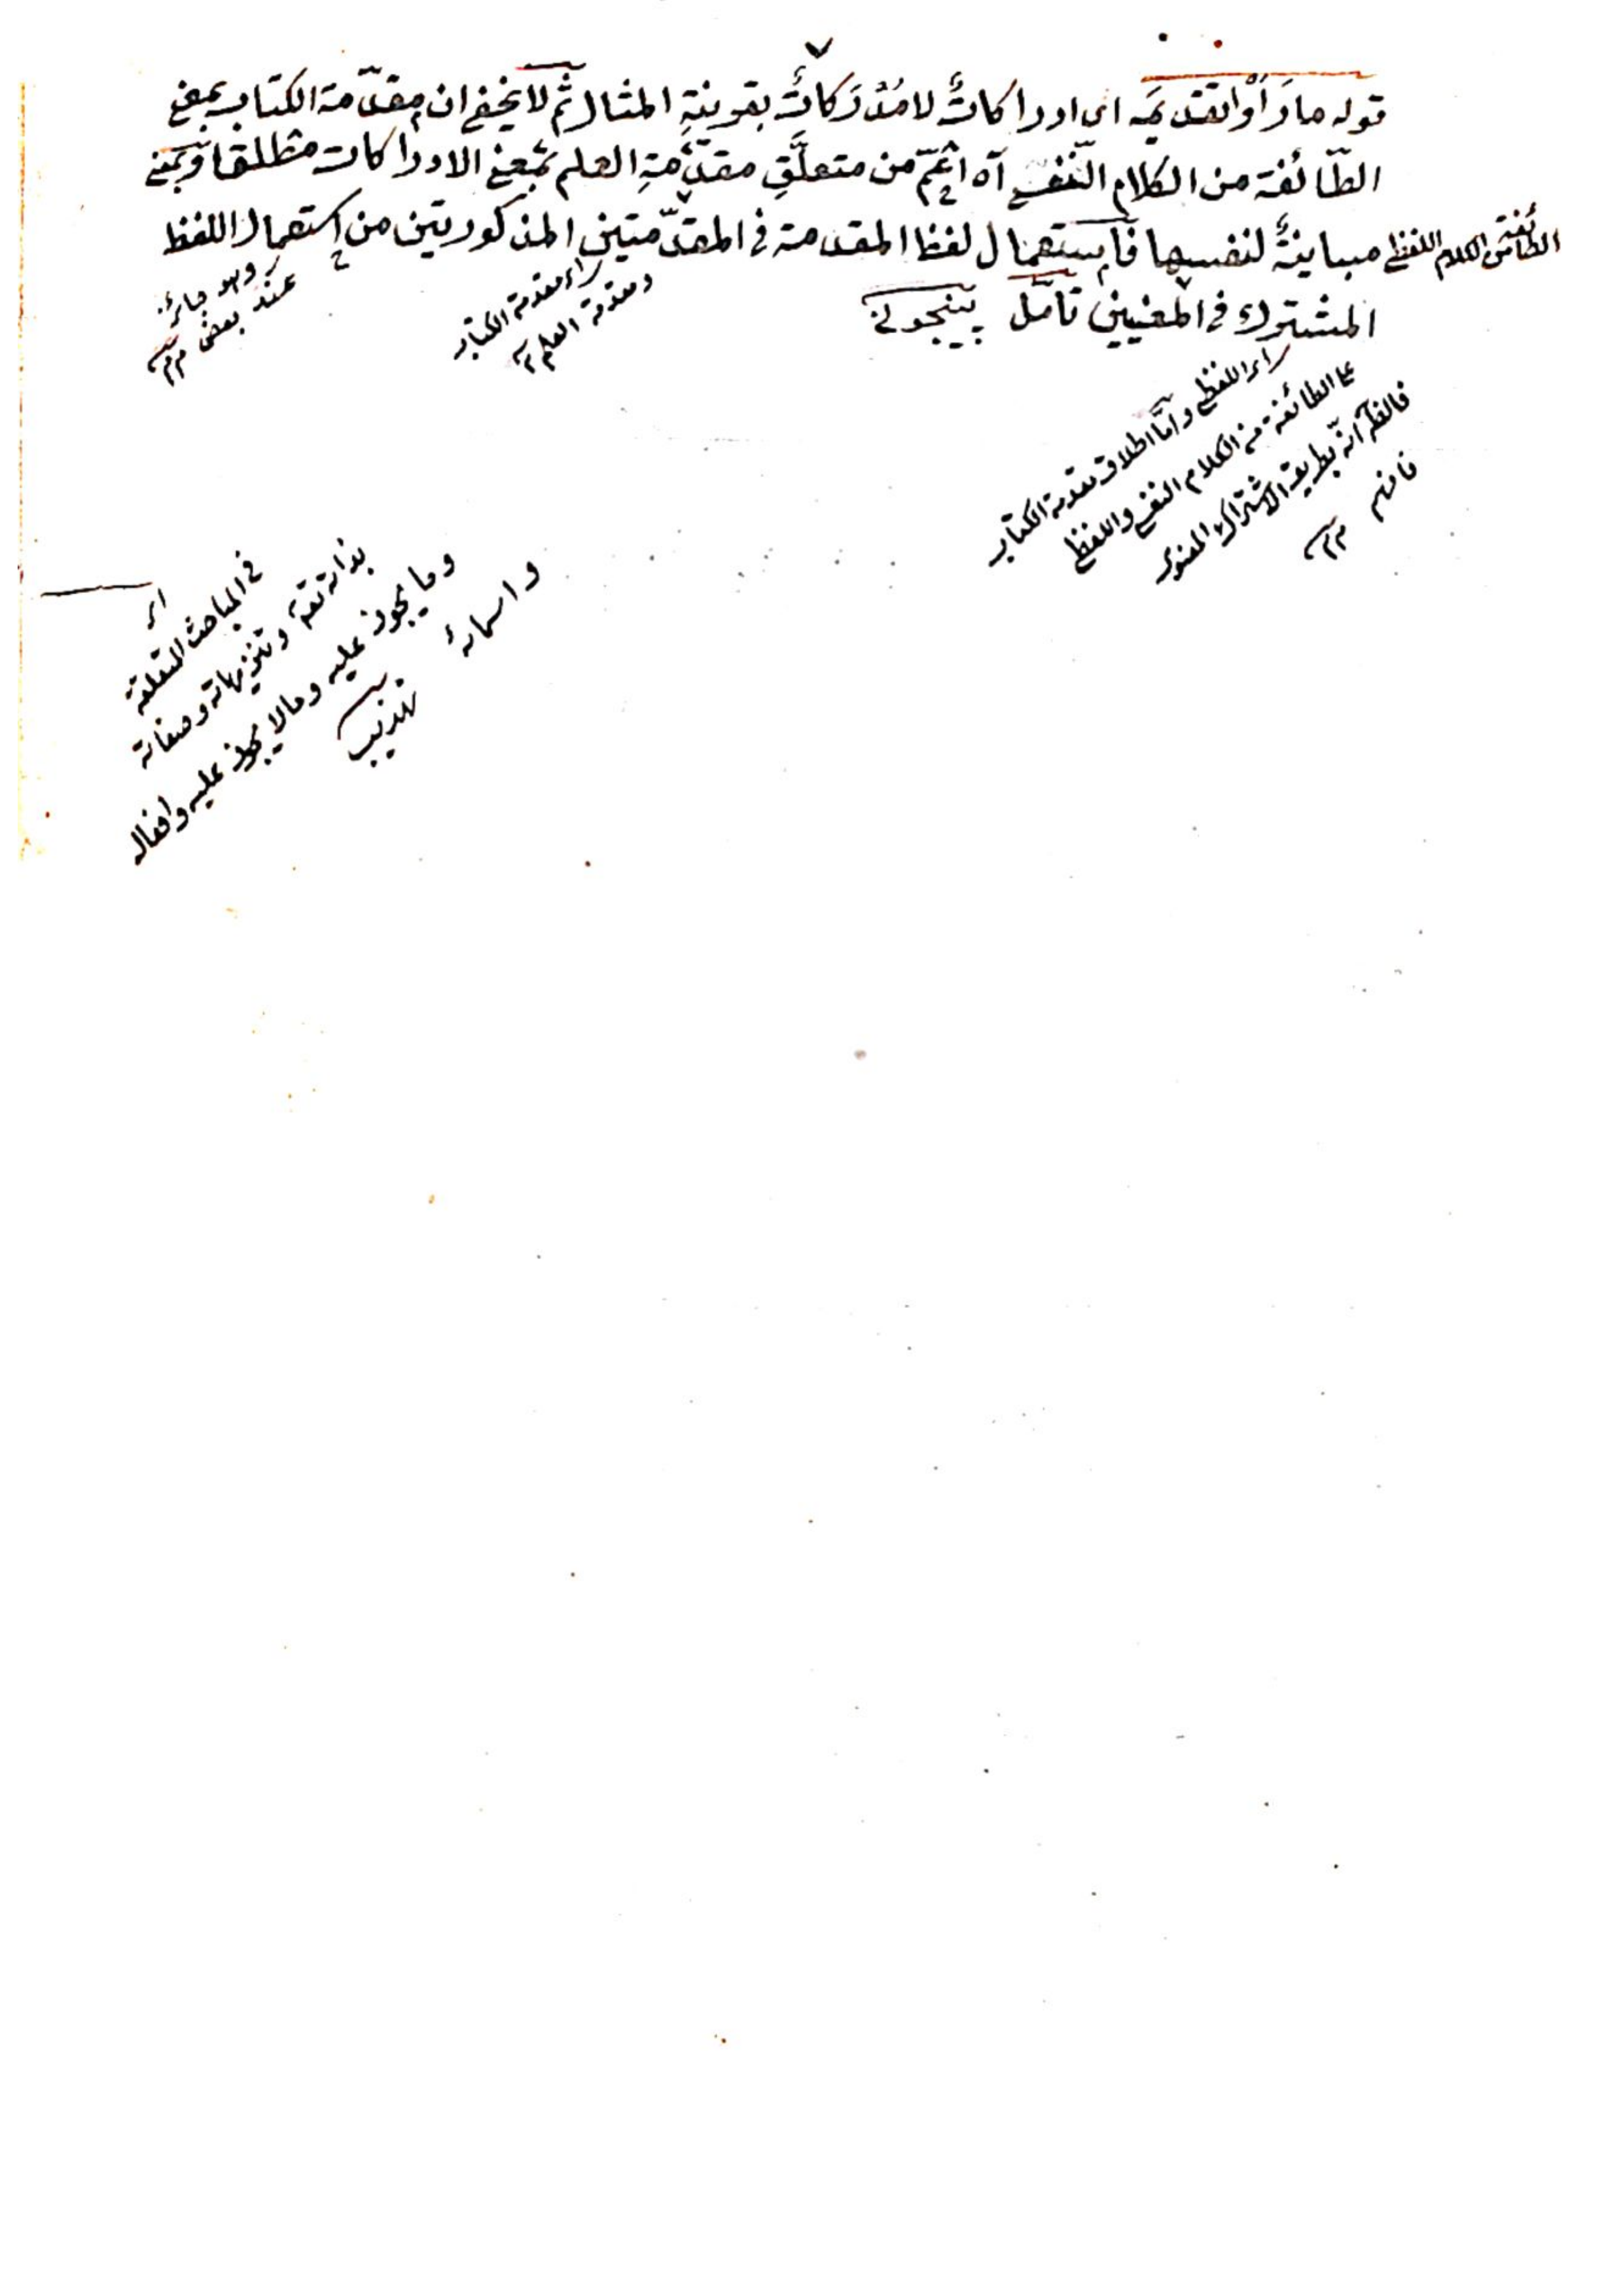 قوله ما رَاَوْا تقديمَه اى ادراكاتٌ لا مُدْرَكاتٌ بقرينةِ المثال ثم لا يخفى ان مقدّمة الكتاب بمعنى
الطّائفة من الكلام النّفسى آه اعمّ من متعلَّقِ مقدّمةِ العلم بمعنى الادراكات مطلقا وبمعنى
الطائفة من الكلام اللفظى مباينةٌ لنفسها فاستعمال لفظ المقدمة فى المقدّمتين المذكورتين من استعمال اللفظ
المشترك فى المعنيين تأمّل بينجونى
وهو جائز
عند بعض
اى مقدمة الكتاب
ومقدمة العلم
اى اللفظى وامّا اطلاق مقدمة الكتاب
على الطائفة من الكلام النفسى واللفظى
فالظ انّه بطريق الاشتراك المعنوى
فافهم
اى
فى المباحث المتعلقة
بذاته تعه وتنزيهاته وصفاته
وما يجوز عليه وما لا يجوز عليه وافعاله
واسمائه
تهذيب